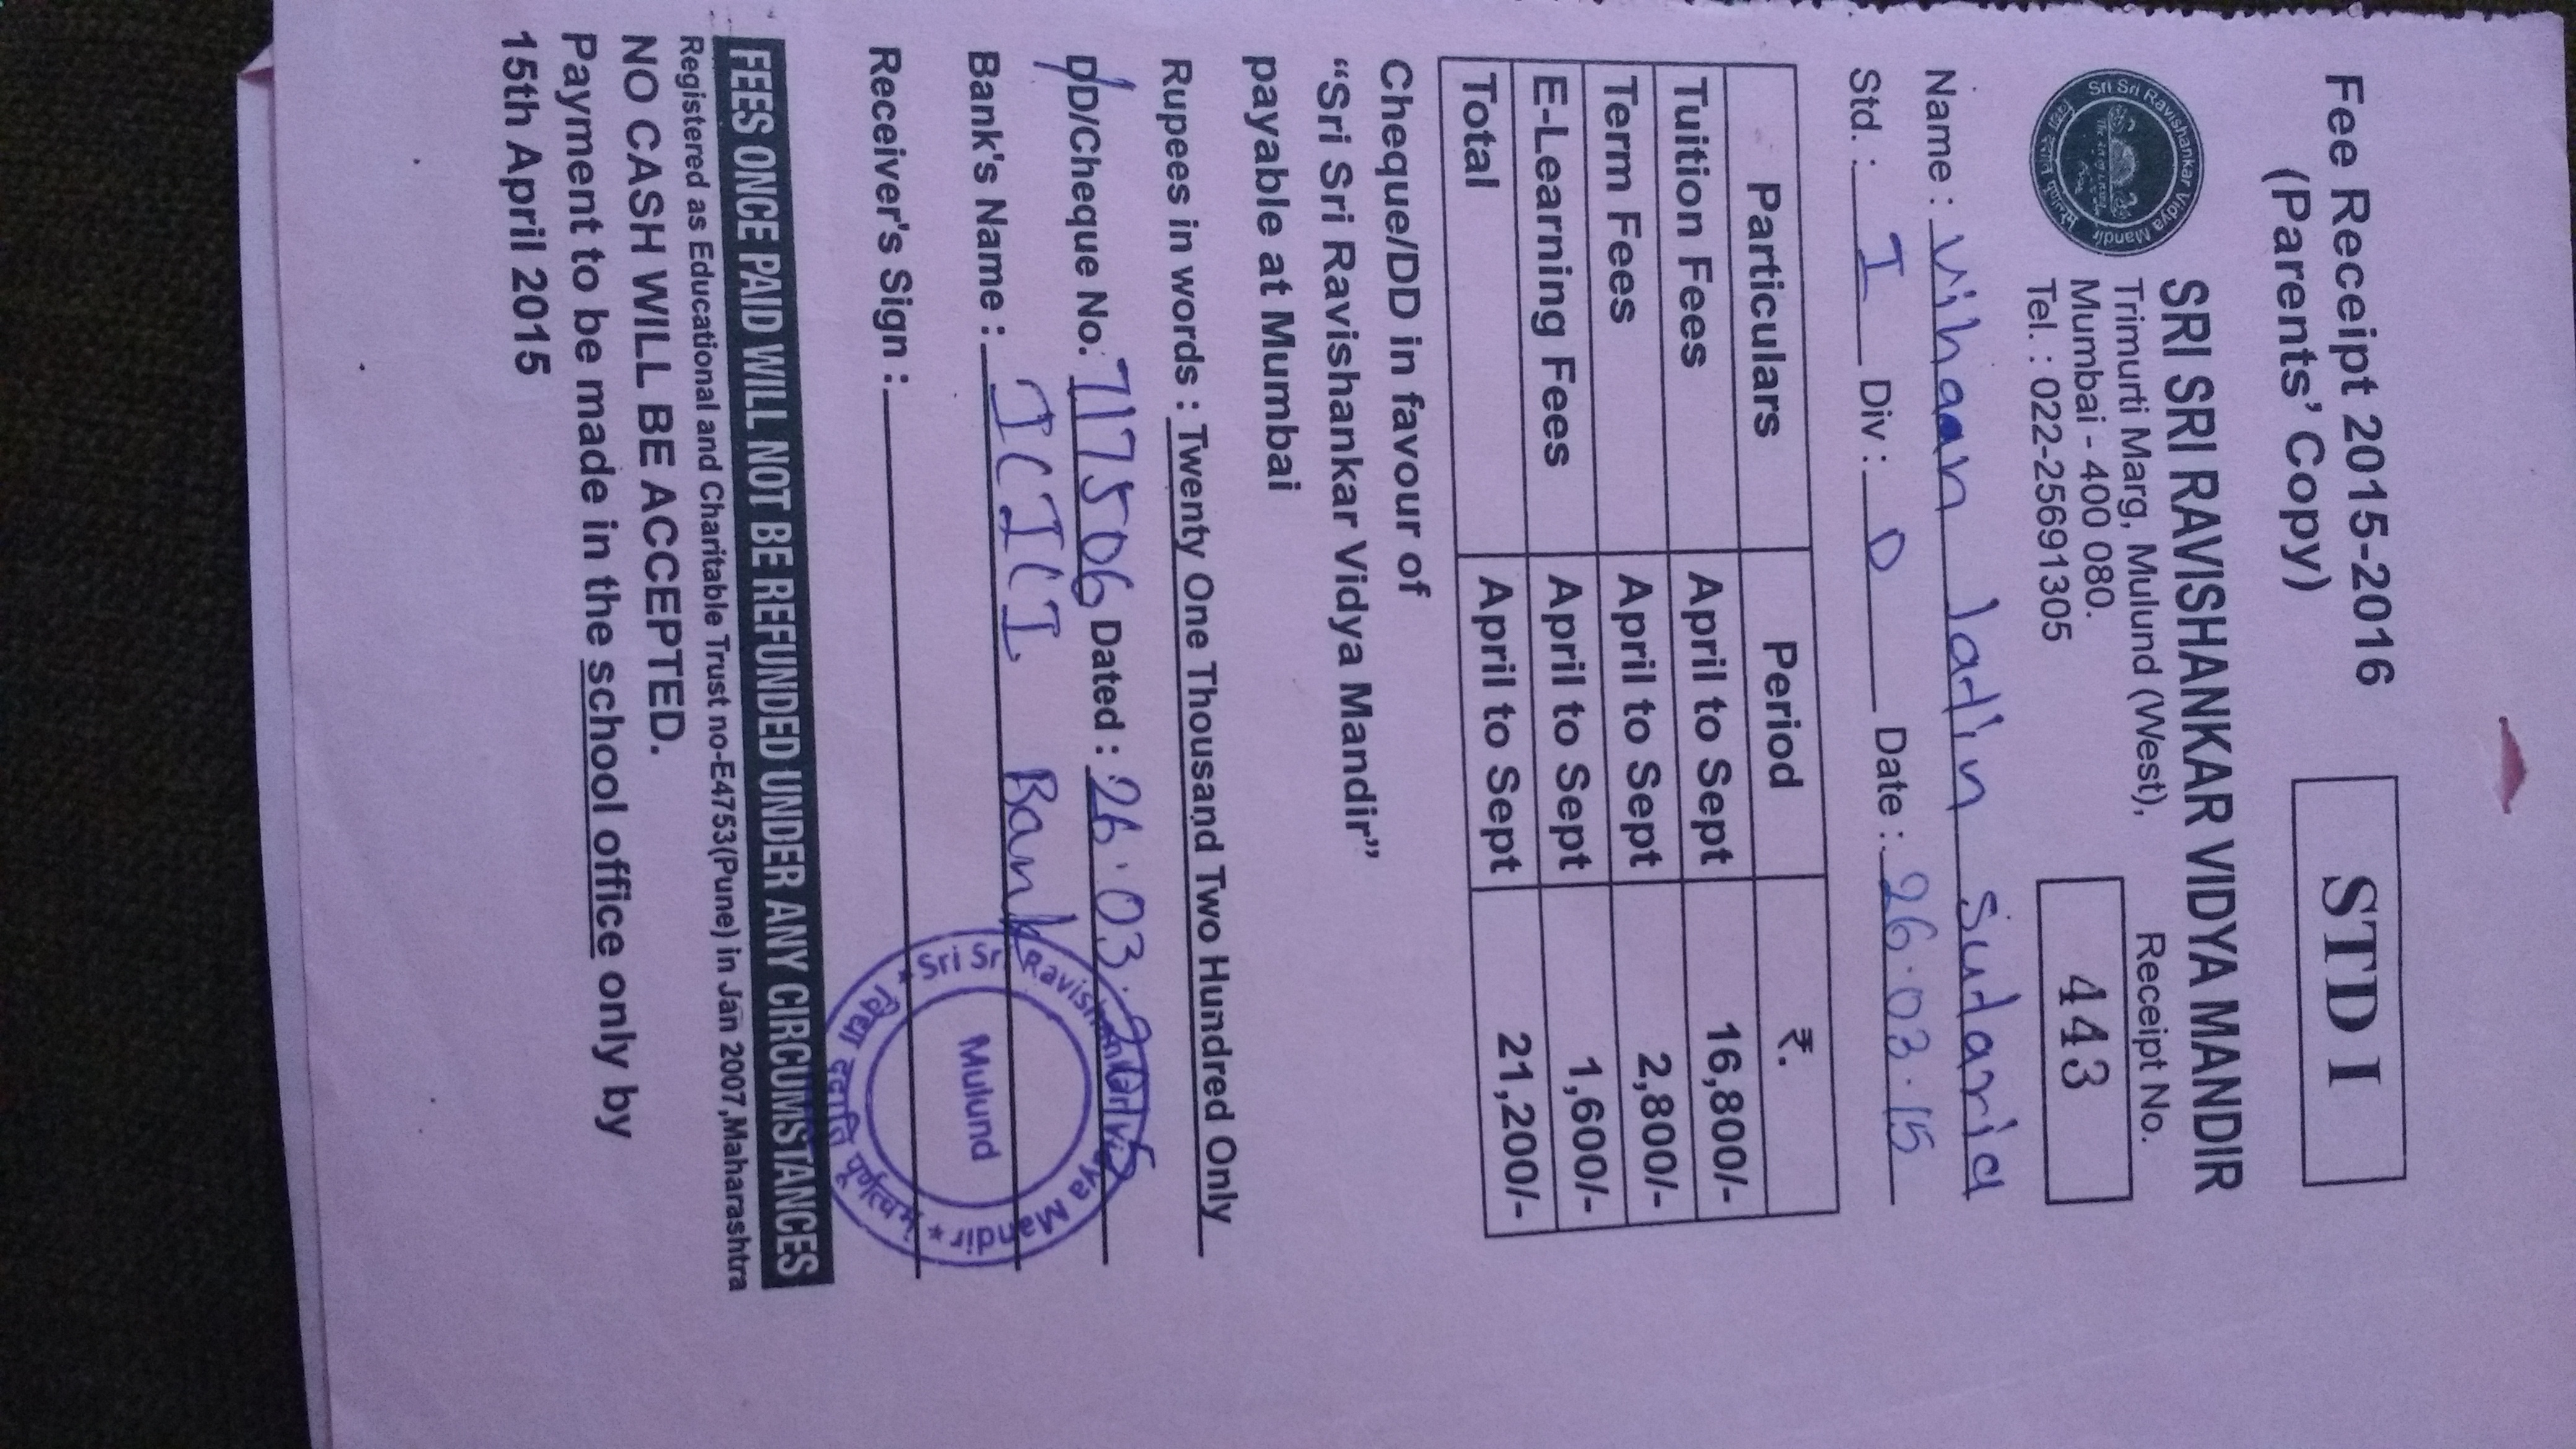 Fee Receipt 2015-2016
(Parents' Copy)
STD I
SRI SRI RAVISHANKAR VIDYA MANDIR
Trimurti Marg, Mulund (West),
Mumbai - 400 080.
Tel. : 022-25691305
Receipt No.
443
Sri Sri Ravishankar Vidya Mandir
Name : Vihaan Jatin Sudaria
Std. : I Div : D Date : 26.03.15
Particulars Period ₹.
Tuition Fees April to Sept 16,800/-
Term Fees April to Sept 2,800/-
E-Learning Fees April to Sept 1,600/-
Total April to Sept 21,200/-
Cheque/DD in favour of
“Sri Sri Ravishankar Vidya Mandir”
payable at Mumbai
Rupees in words : Twenty One Thousand Two Hundred Only
DD/Cheque No. 717506 Dated : 26.03.2015
Bank's Name : ICICI Bank
Receiver's Sign :
Sri Sri Ravishankar Vidya Mandir
Mulund
विद्या ददाति पूर्णत्वम्
FEES ONCE PAID WILL NOT BE REFUNDED UNDER ANY CIRCUMSTANCES
Registered as Educational and Charitable Trust no-E4753(Pune) in Jan 2007,Maharashtra
NO CASH WILL BE ACCEPTED.
Payment to be made in the school office only by
15th April 2015